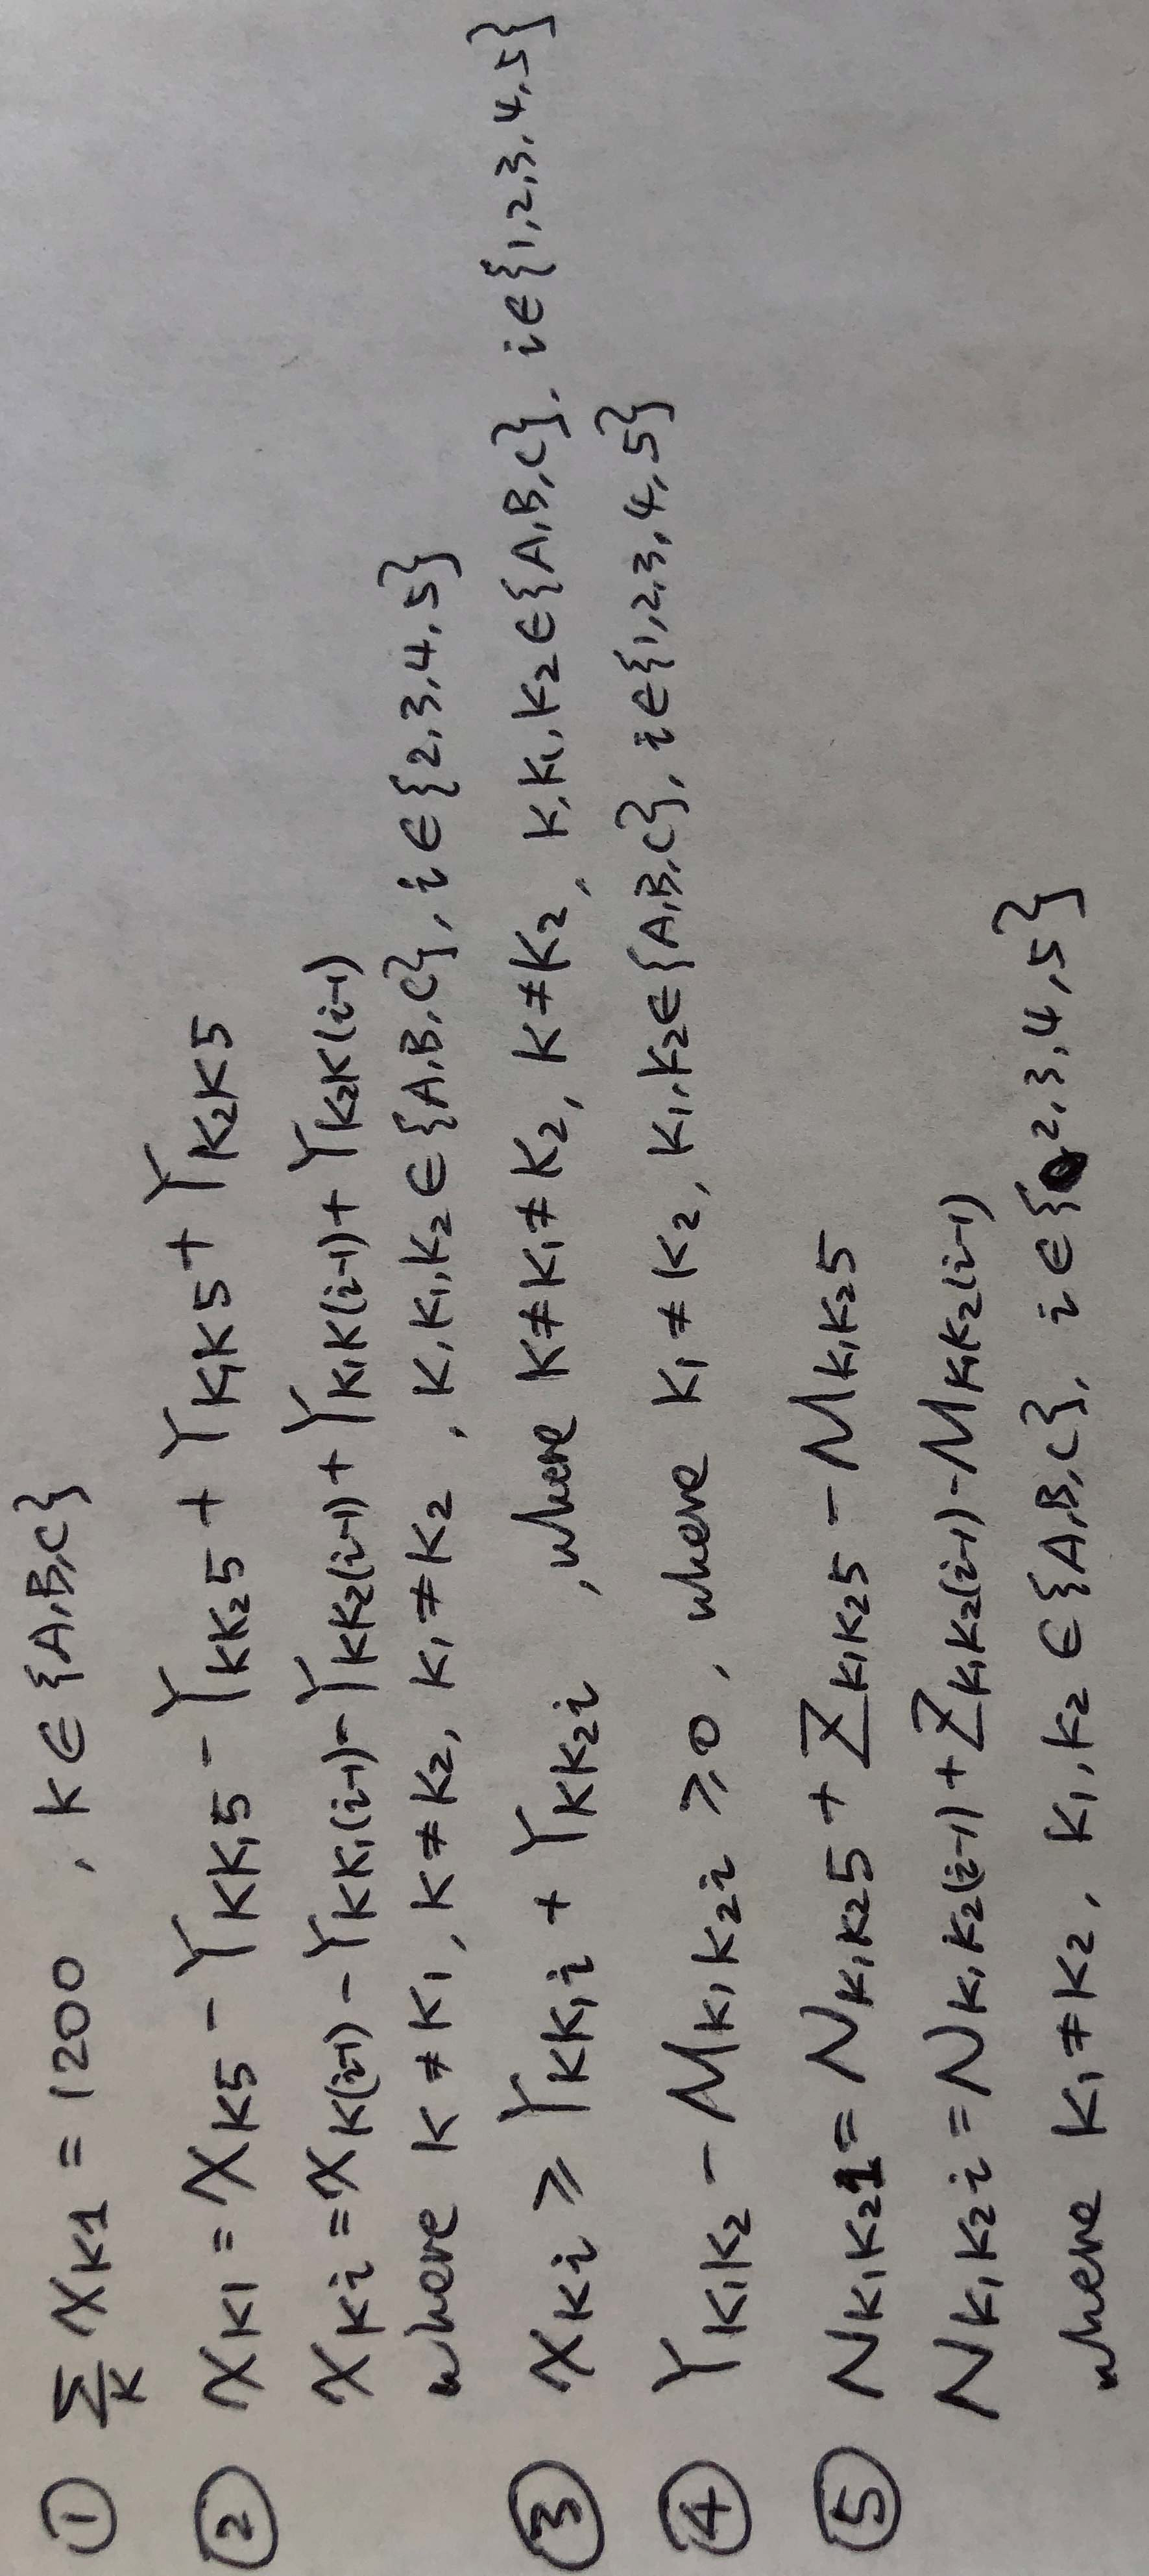 ① ∑_K X_K1 = 1200 , K ∈ {A,B,C}
② X_K1 = X_K5 - Y_KK₁5 - Y_KK₂5 + Y_K₁K5 + Y_K₂K5
X_Ki = X_K(i-1) - Y_KK₁(i-1) - Y_KK₂(i-1) + Y_K₁K(i-1) + Y_K₂K(i-1)
where K ≠ K₁, K ≠ K₂, K₁ ≠ K₂ , K,K₁,K₂ ∈ {A,B,C}, i ∈ {2,3,4,5}
③ X_Ki ⩾ Y_KK₁i + Y_KK₂i , where K ≠ K₁ ≠ K₂, K ≠ K₂, K,K₁,K₂ ∈ {A,B,C}, i ∈ {1,2,3,4,5}
④ Y_K₁K₂ - M_K₁K₂i ⩾ 0, where K₁ ≠ K₂, K₁,K₂ ∈ {A,B,C}, i ∈ {1,2,3,4,5}
⑤ N_K₁K₂1 = N_K₁K₂5 + Z_K₁K₂5 - M_K₁K₂5
N_K₁K₂i = N_K₁K₂(i-1) + Z_K₁K₂(i-1) - M_K₁K₂(i-1)
where K₁ ≠ K₂, K₁,K₂ ∈ {A,B,C}, i ∈ {2,3,4,5}